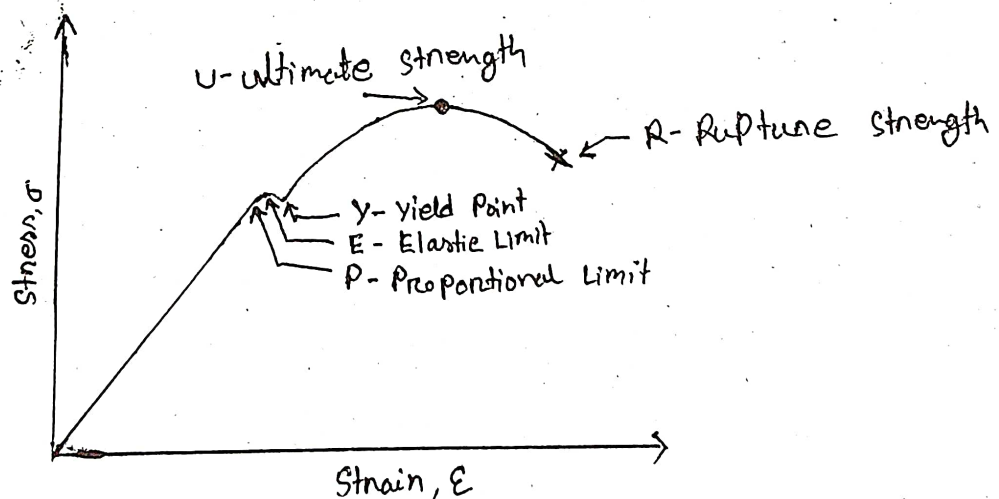 U-ultimate strength
R- Rupture strength
Y- Yield Point
E - Elastic Limit
P- Proportional Limit
Stress, σ
Strain, ε